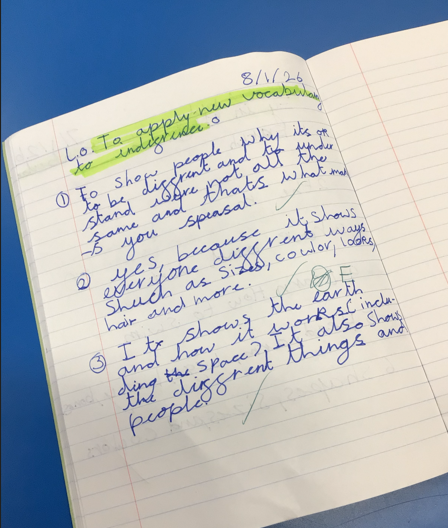 8/1/26
L.O. To apply new vocabulary
to indifrence.
① To show people why its ok
to be diffrent and to under
stand were not all the
same and thats what mak
-s you speasal.
② yes, because it shows
everyone diffrent ways
Shuch as Sizes, coulor, looks,
hair and more.
E
③ I to shows the earth
and how it works( inclu-
ding the space?, It also Shows
the diffrent things and
people.